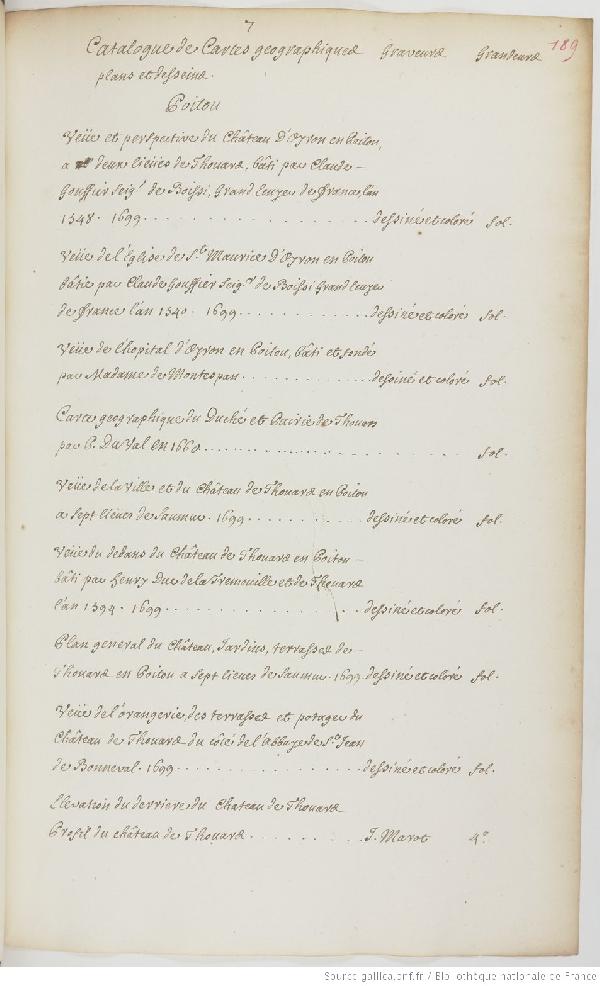 7
189
Catalogue de Cartes geographiques Graveurs Grandeurs
plans et desseins.
Poitou
Veüe et perspective du Château D'Oyron en Poitou,
a deux lieües de Thouars, bâti par Claude
Gouffier Seigr. de Boissi, Grand Ecuyer de France, l'an
1548. 1699. dessiné et coloré fol.
Veüe de l'Eglise de St. Maurice D'Oyron en Poitou
bâtie par Claude Gouffier Seigr. de Boissi Grand Ecuyer
de France l'an 1540. 1699. dessiné et coloré fol.
Veüe de l'hopital d'Oyron en Poitou, bâti et fondé
par Madame de Montespan. dessiné et coloré fol.
Carte geographique du Duché et Pairie de Thouars
par P. Du Val en 1660. fol.
Veüe de la Ville et du Château de Thouars en Poitou
a sept lieues de Saumur. 1699. dessiné et coloré fol.
Veüe du dedans du Château de Thouars en Poitou
bâti par Henry Duc de la Tremouille et de Thouars
l'an 1594. 1699. dessiné et coloré fol.
Plan general du Château, Jardins, terrasses de
Thouars en Poitou a sept lieues de Saumur. 1699. dessiné et coloré fol.
Veüe de l'orangerie, des terrasses et potager du
Château de Thouars du côté de l'Abbaye de St. Jean
de Bonneval. 1699. dessiné et coloré fol.
Elevation du derriere du Chateau de Thouars
Profil du château de Thouars. J. Marot 4°.
Source gallica.bnf.fr / Bibliothèque nationale de France